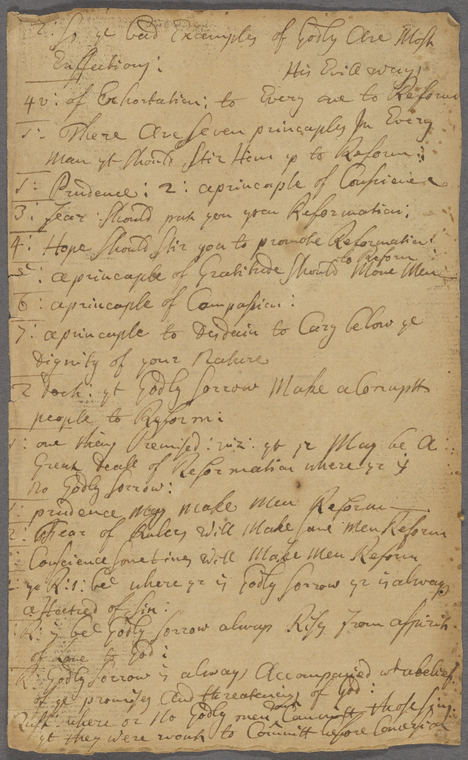 2: So ye bad Examples of Godly Are Most
Enffectious: His Evile ways
4v: of Exhortation; to Every one to Reform
1: There Are Seven princaples In Every
man yt should Stir Him up to Reform:
1: Prudence: 2: a princaple of Conscience
3: fear should put you upon Reformation:
4: Hope Should Stir you to promote Reformation:
to Reform
5: a princaple of Gratitude Should Move Men
6: a princaple of Compassion:
7: a princaple to Disdain to Cary below ye
Dignity of your Nature
2 Doct: yt Godly Sorrow Make a Corrupt
people to Reform:
1: one thing Premised: viz: yt yr May be A
Great Deall of Reformation where yr is
No Godly Sorrow:
1: prudence may make Men Reform
2: fear of Rulers will Make Some Men Reform
Conscience Sometimes will Make Men Reform
ye R: 1: bec where yr is Godly Sorrow yr is always
a Hatred of Sin:
R: bec Godly Sorrow always Rise from a Spirit
of Love to God:
R: Godly Sorrow is always Accompanied wt a belief
of ye promises And threatenings of God:
where or No Godly men dont Committ those Sins
yt they were wont to Committ before Conversion